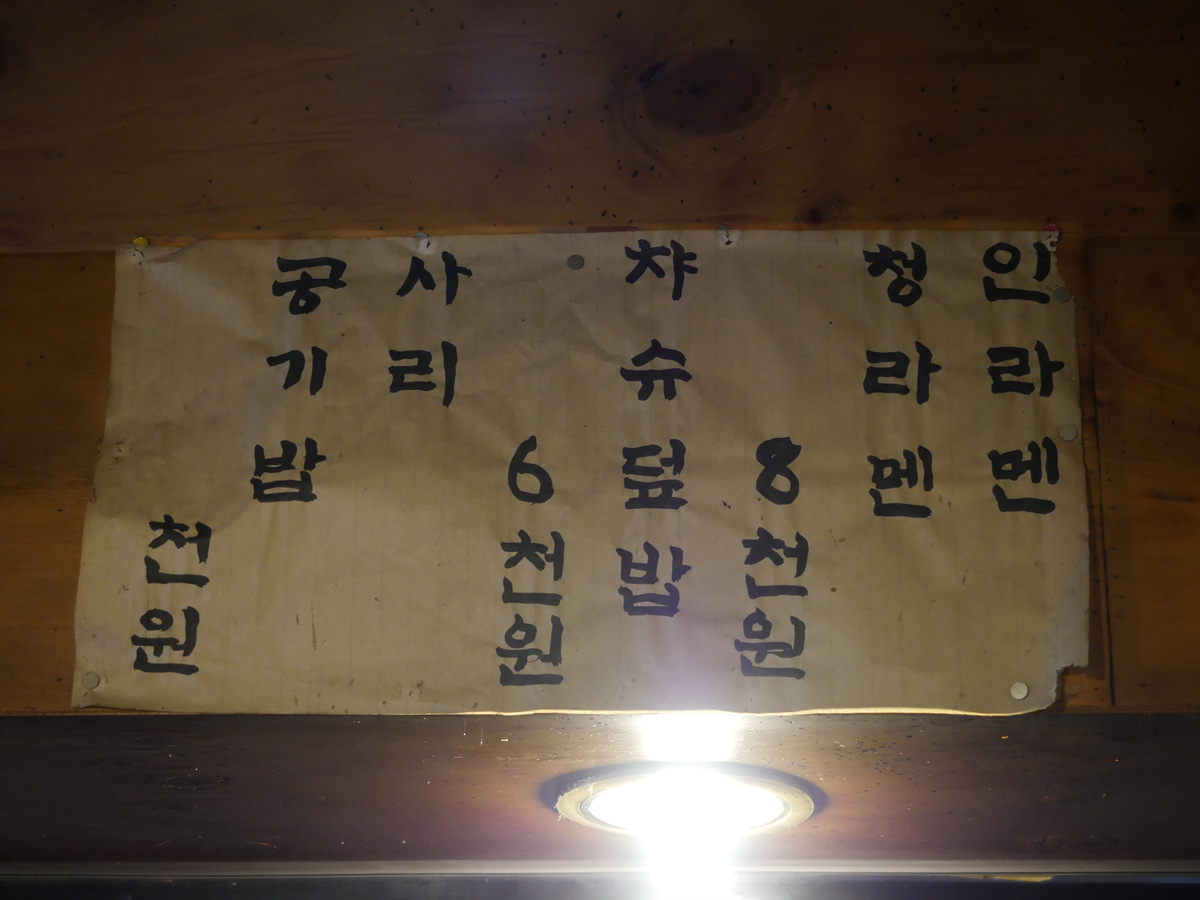 인라멘
청라멘
8천원
챠슈덮밥
6천원
사리
공기밥
천원